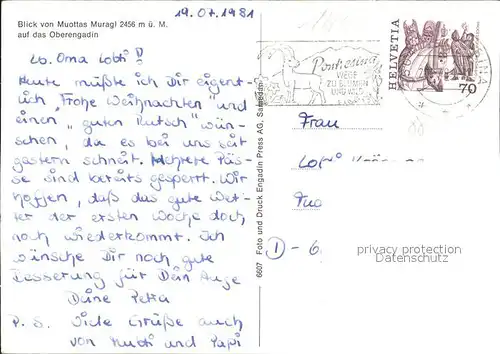 Blick von Muottas Muragl 2456 m ü. M.
auf das Oberengadin
19.07.1981
Lb. Oma Lobti!
Heute müßte ich Dir eigent-
lich „Frohe Weihnachten" und
einen „guten Rutsch" wün-
schen, da es bei uns seit
gestern schneit. Mehrere Päs-
se sind bereits gesperrt. Wir
hoffen, daß das gute Wet-
ter der ersten Woche doch
noch wiederkommt. Ich
wünsche Dir noch gute
Besserung für Dein Auge
Deine Petra
P.S. Viele Grüße auch
von Mutti und Papi
6607 Foto und Druck Engadin Press AG, Samedan
Pontresina
WEGE
ZU BLUMEN
UND WILD
HELVETIA
70
Frau
I - 6
watermark protection
Datenschutz